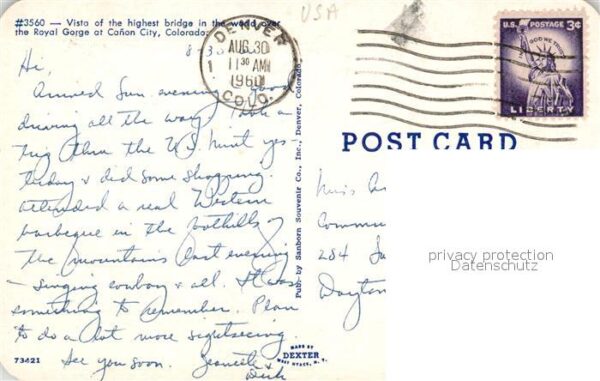 #3560 — Vista of the highest bridge in the world over
the Royal Gorge at Cañon City, Colorado.
USA
DENVER
AUG 30
11 30 AM
1960
COLO.
U.S. POSTAGE 3¢
IN GOD WE TRUST
LIBERTY
POST CARD
Hi,
Arrived Sun. evening
driving all the way. Took a
trip thru the U.S. mint yes-
terday & did some shopping.
Attended a real Western
barbeque in the foothills of
the mountains last evening
- singing cowboy & all. It was
something to remember. Plan
to do a lot more sightseeing.
See you soon. Jeanette &
Dick
Pub. by Sanborn Souvenir Co., Inc., Denver, Colorado
Miss
Commu
284
Dayton
privacy protection
Datenschutz
73421
MADE BY
DEXTER
WEST NYACK, N.Y.